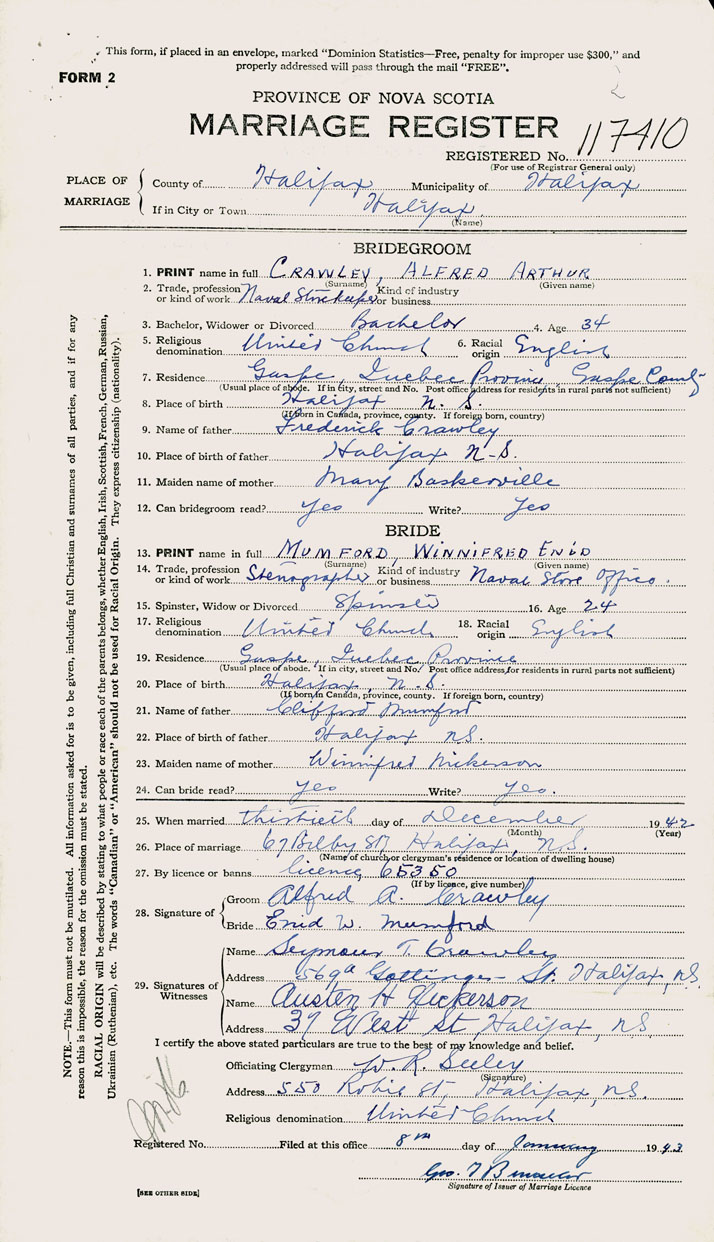 This form, if placed in an envelope, marked "Dominion Statistics—Free, penalty for improper use $300," and
properly addressed will pass through the mail "FREE".
FORM 2
PROVINCE OF NOVA SCOTIA
MARRIAGE REGISTER
REGISTERED No. 117410
(For use of Registrar General only)
PLACE OF MARRIAGE
County of Halifax Municipality of Halifax
If in City or Town Halifax
(Name)
BRIDEGROOM
1. PRINT name in full CRAWLEY, ALFRED ARTHUR
(Surname) (Given name)
2. Trade, profession or kind of work Naval Storekeeper Kind of industry or business
3. Bachelor, Widower or Divorced Bachelor 4. Age 34
5. Religious denomination United Church 6. Racial origin English
7. Residence Gaspe, Quebec Province, Gaspe County
(Usual place of abode. If in city, street and No. Post office address for residents in rural parts not sufficient)
8. Place of birth Halifax N.S.
(If born in Canada, province, county. If foreign born, country)
9. Name of father Frederick Crawley
10. Place of birth of father Halifax N-S.
11. Maiden name of mother Mary Baskerville
12. Can bridegroom read? Yes Write? Yes
BRIDE
13. PRINT name in full MUMFORD, WINNIFRED ENID
(Surname) (Given name)
14. Trade, profession or kind of work Stenographer Kind of industry or business Naval Store Office.
15. Spinster, Widow or Divorced Spinster 16. Age 24
17. Religious denomination United Church 18. Racial origin English
19. Residence Gaspe, Quebec Province
(Usual place of abode. If in city, street and No. Post office address for residents in rural parts not sufficient)
20. Place of birth Halifax, N.S.
(If born in Canada, province, county. If foreign born, country)
21. Name of father Clifford Mumford
22. Place of birth of father Halifax N.S.
23. Maiden name of mother Winnifred Nickerson
24. Can bride read? Yes Write? Yes.
25. When married thirtieth day of December 1942
(Month) (Year)
26. Place of marriage 67 Bilby St Halifax, N.S.
(Name of church or clergyman's residence or location of dwelling house)
27. By licence or banns licence 65350
(If by licence, give number)
28. Signature of
Groom Alfred A. Crawley
Bride Enid W. Mumford
29. Signatures of Witnesses
Name Seymour T. Crawley
Address 569a Gottingen St. Halifax, N.S.
Name Austen H Nickerson
Address 37 West St, Halifax, N.S.
I certify the above stated particulars are true to the best of my knowledge and belief.
Officiating Clergyman W. R. Seeley
(Signature)
Address 550 Robie St, Halifax, N.S.
Religious denomination United Church
Registered No. Filed at this office 8th day of January 1943
Geo.
Signature of Issuer of Marriage Licence
[SEE OTHER SIDE]
NOTE.—This form must not be mutilated. All information asked for is to be given, including full Christian and surnames of all parties, and if for any
reason this is impossible, the reason for the omission must be stated.
RACIAL ORIGIN will be described by stating to what people or race each of the parents belongs, whether English, Irish, Scottish, French, German, Russian,
Ukrainian (Ruthenian), etc. The words "Canadian" or "American" should not be used for Racial Origin. They express citizenship (nationality).